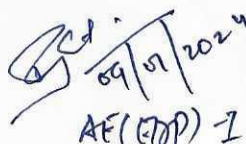 09/01/2024
AE(EDP)-I